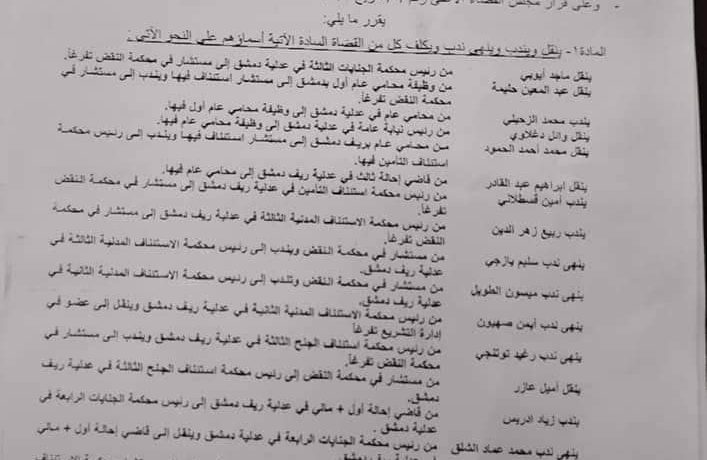 - وعلى قرار مجلس القضاء الأعلى رقم
يقرر ما يلي:
المادة ١- ينقل ويندب وينهي ندب ويكلف كل من القضاة السادة الآتية أسماؤهم على النحو الآتي :
ينقل ماجد أيوبي من رئيس محكمة الجنايات الثالثة في عدلية دمشق إلى مستشار في محكمة النقض تفرغاً.
ينقل عبد المعين حتيمة من وظيفة محامي عام أول بدمشق إلى مستشار استئناف فيها ويندب إلى مستشار في
محكمة النقض تفرغاً.
يندب محمد الزحيلي من محامي عام في عدلية دمشق إلى وظيفة محامي عام أول فيها.
ينقل وائل دغلاوي من رئيس نيابة عامة في عدلية دمشق إلى وظيفة محامي عام فيها.
ينقل محمد أحمد الحمود من محامي عام بريف دمشق إلى مستشار استئناف فيها ويندب إلى رئيس محكمة
استئناف التأمين فيها.
ينقل ابراهيم عبد القادر من قاضي إحالة ثالث في عدلية ريف دمشق إلى محامي عام فيها.
يندب أمين قسطلاني من رئيس محكمة استئناف التأمين في عدلية ريف دمشق إلى مستشار في محكمة النقض
تفرغاً.
يندب ربيع زهر الدين من رئيس محكمة الاستئناف المدنية الثالثة في عدلية ريف دمشق إلى مستشار في محكمة
النقض تفرغاً.
ينهى ندب سليم يازجي من مستشار في محكمة النقض ويندب إلى رئيس محكمة الاستئناف المدنية الثالثة في
عدلية ريف دمشق.
ينهى ندب ميسون الطويل من مستشار في محكمة النقض وتندب إلى رئيس محكمة الاستئناف المدنية الثانية في
عدلية ريف دمشق.
ينهى ندب أيمن صهيون من رئيس محكمة الاستئناف المدنية الثانية في عدلية ريف دمشق وينقل إلى عضو في
إدارة التشريع تفرغاً
ينهى ندب رغيد توتنجي من رئيس محكمة استئناف الجنح الثالثة في عدلية ريف دمشق ويندب إلى مستشار في
محكمة النقض تفرغاً.
ينقل أميل عازر من مستشار في محكمة النقض إلى رئيس محكمة استئناف الجنح الثالثة في عدلية ريف
دمشق.
يندب زياد ادريس من قاضي إحالة أول + مالي في عدلية ريف دمشق إلى رئيس محكمة الجنايات الرابعة في
عدلية دمشق .
ينهى ندب محمد عماد الشلق من رئيس محكمة الجنايات الرابعة في عدلية دمشق وينقل إلى قاضي إحالة أول + مالي